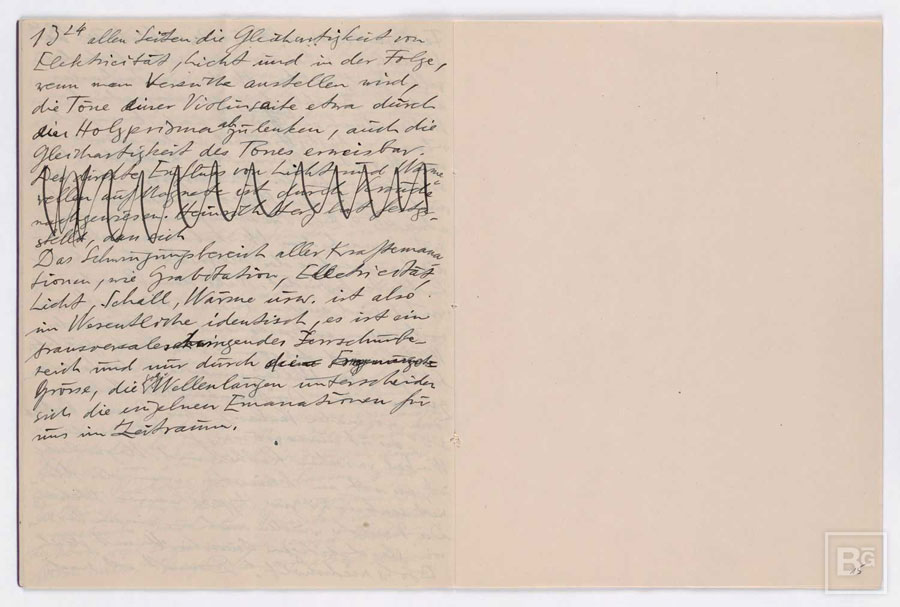 13 24 allen Seiten die Gleichartigkeit von
Elektricität, Licht und in der Folge,
wenn man Versuche anstellen wird,
die Töne einer Violinsaite etwa durch
ein Holzprisma abzulenken, auch die
Gleichartigkeit des Tones erweisbar.
Der direkte Einfluss von Licht und Wärme-
wellen auf Magnete ist durch Versuche
nachgewiesen. Heinrich Herz hat festge-
stellt, dass sich
Das Schwingungsbereich aller Kraftemana-
tionen, wie Gravitation, Elektricität,
Licht, Schall, Wärme usw. ist also
im Wesentliche identisch, es ist ein
transversalschwingendes
reich und nur durch die
Grösse, die Wellenlängen unterscheiden
sich die einzelnen Emanationen für
uns im Zeitraum.
BG
15